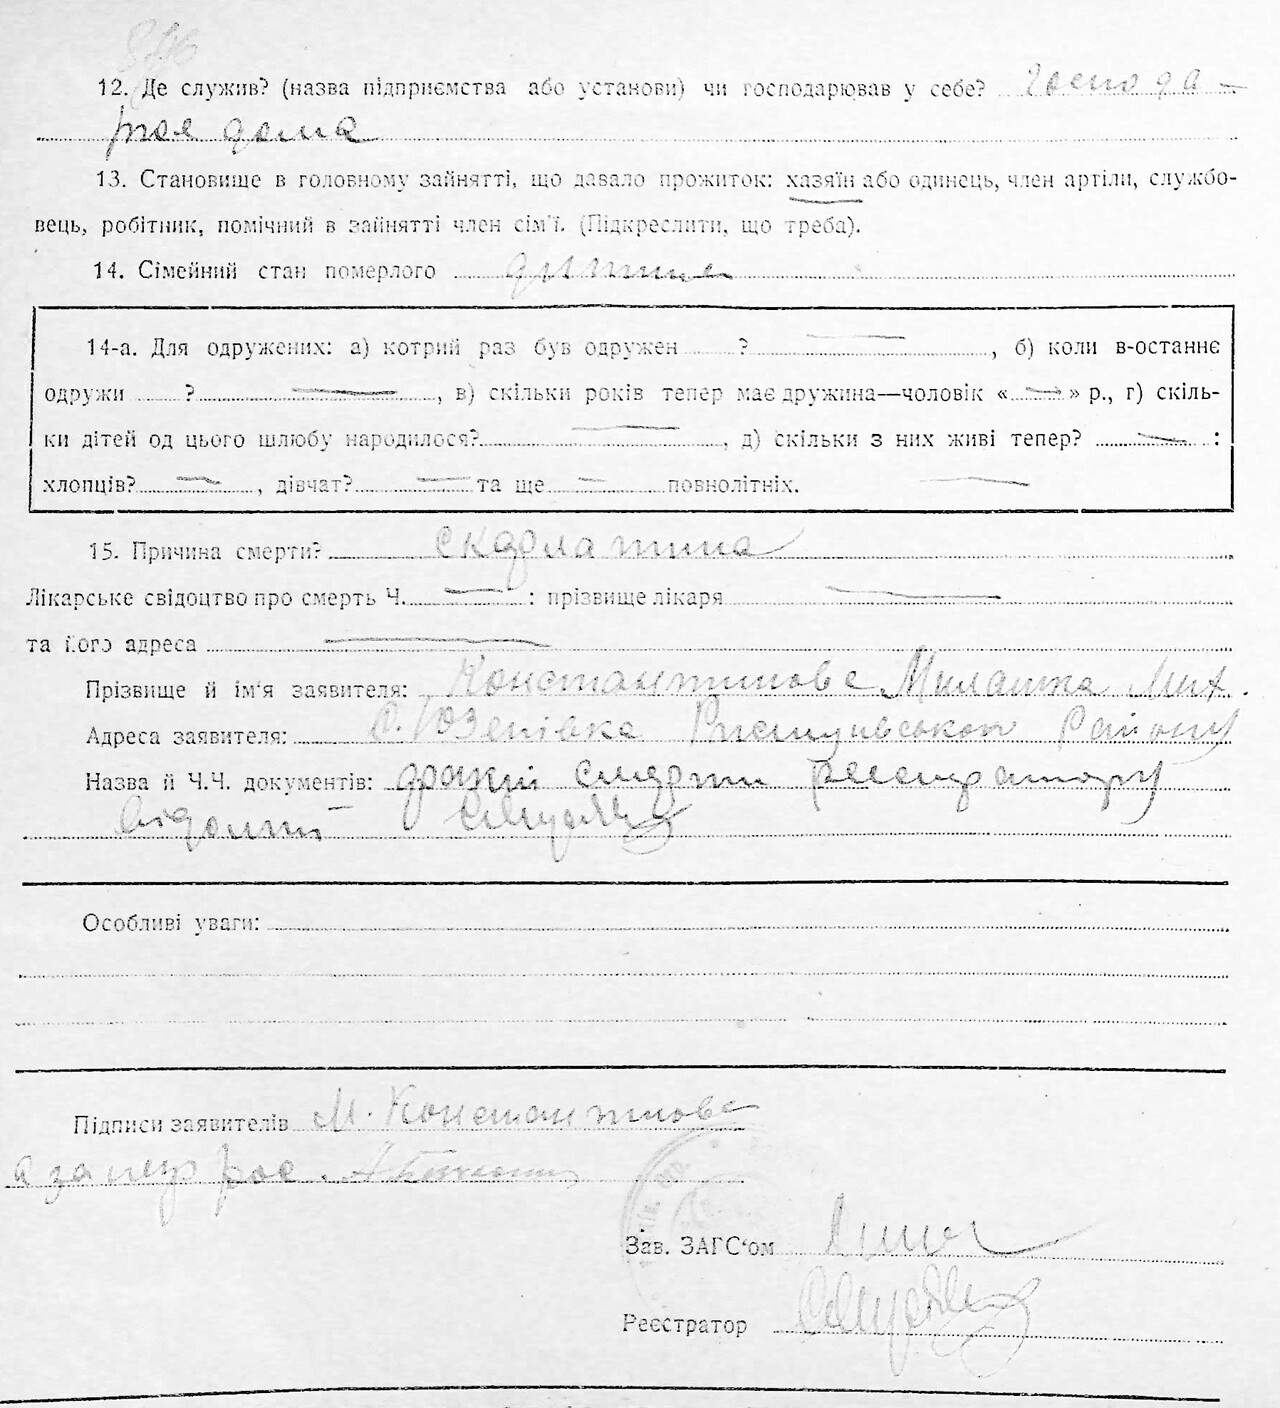 12. Де служив? (назва підприємства або установи) чи господарював у себе? господа-
рює дома
13. Становище в головному зайнятті, що давало прожиток: хазяїн або одинець, член артіли, службо-
вець, робітник, помічний в зайнятті член сім'ї. (Підкреслити, що треба).
14. Сімейний стан померлого дитина
14-а. Для одружених: а) котрий раз був одружен ? , б) коли в-останнє
одружи ? , в) скільки років тепер має дружина—чоловік « » р., г) скіль-
ки дітей од цього шлюбу народилося? , д) скільки з них живі тепер? :
хлопців? , дівчат? та ще повнолітніх.
15. Причина смерти? скарлатина
Лікарське свідоцтво про смерть Ч. : прізвище лікаря
та його адреса
Прізвище й ім'я заявителя: Константинова Милашка Мих.
Адреса заявителя: с. Юзепівка Району
Назва й Ч.Ч. документів: смерти реєстратору
відомий
Особливі уваги:
Підписи заявителів М. Константинова
а за
Зав. ЗАГС'ом
Реєстратор